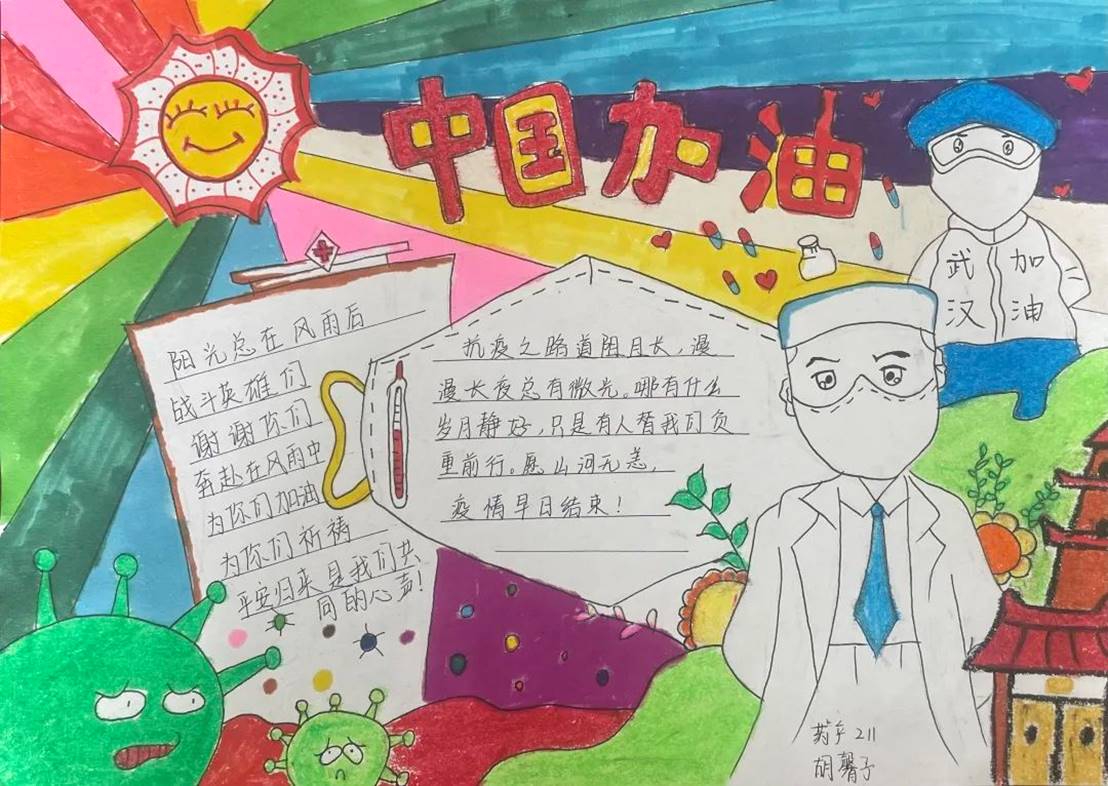 中国加油
武 加
汉 油
阳光总在风雨后
战斗英雄们
谢谢你们
奔赴在风雨中
为你们加油
为你们祈祷
平安归来是我们共
同的心声!
抗疫之路道阻且长,漫
漫长夜总有微光。哪有什么
岁月静好,只是有人替我们负
重前行。愿山河无恙,
疫情早日结束!
药学211
胡馨子